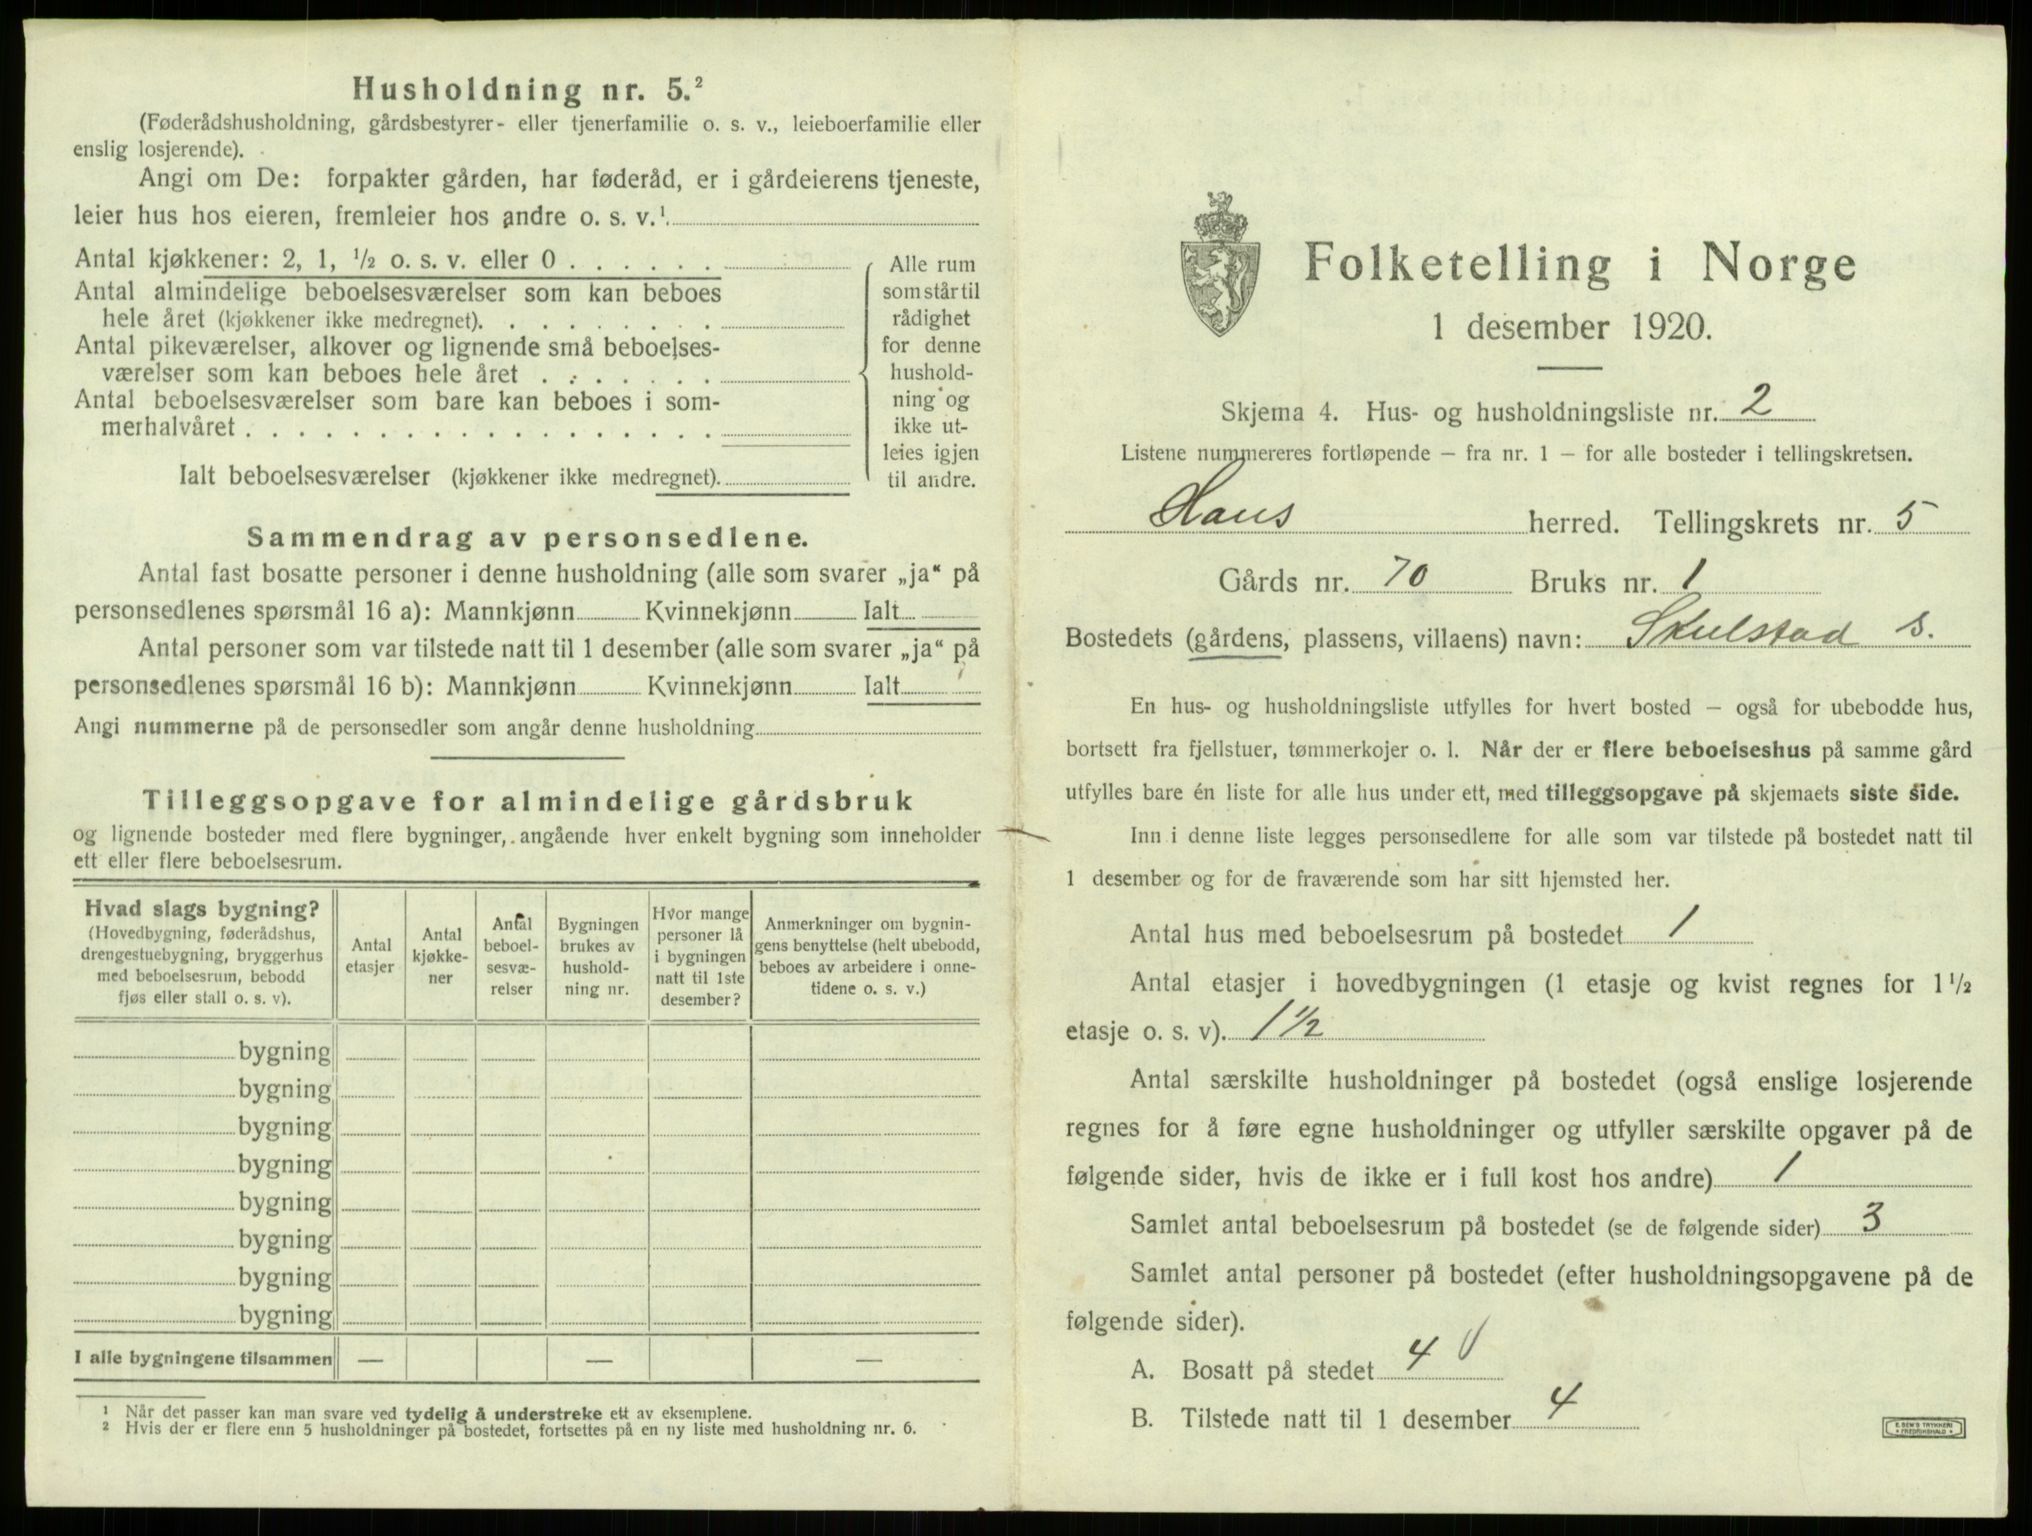 Husholdning nr. 5.²
(Føderådshusholdning, gårdsbestyrer- eller tjenerfamilie o. s. v., leieboerfamilie eller
enslig losjerende).
Angi om De: forpakter gården, har føderåd, er i gårdeierens tjeneste,
leier hus hos eieren, fremleier hos andre o. s. v.¹
Antal kjøkkener: 2, 1, ½ o. s. v. eller 0 . . . . . .
Antal almindelige beboelsesværelser som kan beboes
hele året (kjøkkener ikke medregnet). . . . . . . . .
Antal pikeværelser, alkover og lignende små beboelses-
værelser som kan beboes hele året . . . . . . .
Antal beboelsesværelser som bare kan beboes i som-
merhalvåret . . . . . . . . . . . . . . . . . .
Ialt beboelsesværelser (kjøkkener ikke medregnet).
Alle rum
som står til
rådighet
for denne
hushold-
ning og
ikke ut-
leies igjen
til andre.
Sammendrag av personsedlene.
Antal fast bosatte personer i denne husholdning (alle som svarer „ja“ på
personsedlenes spørsmål 16 a): Mannkjønn Kvinnekjønn Ialt
Antal personer som var tilstede natt til 1 desember (alle som svarer „ja“ på
personsedlenes spørsmål 16 b): Mannkjønn Kvinnekjønn Ialt
Angi nummerne på de personsedler som angår denne husholdning
Tilleggsopgave for almindelige gårdsbruk
og lignende bosteder med flere bygninger, angående hver enkelt bygning som inneholder
ett eller flere beboelsesrum.
Hvad slags bygning?
(Hovedbygning, føderådshus,
drengestuebygning, bryggerhus
med beboelsesrum, bebodd
fjøs eller stall o. s. v).
Antal
etasjer
Antal
kjøkke-
ner
Antal
beboel-
sesvæ-
relser
Bygningen
brukes av
hushold-
ning nr.
Hvor mange
personer lå
i bygningen
natt til 1ste
desember?
Anmerkninger om bygnin-
gens benyttelse (helt ubebodd,
beboes av arbeidere i onne-
tidene o. s. v.)
bygning
bygning
bygning
bygning
bygning
bygning
bygning
bygning
I alle bygningene tilsammen — — —
¹ Når det passer kan man svare ved tydelig å understreke ett av eksemplene.
² Hvis der er flere enn 5 husholdninger på bostedet, fortsettes på en ny liste med husholdning nr. 6.
Folketelling i Norge
1 desember 1920.
Skjema 4. Hus- og husholdningsliste nr. 2
Listene nummereres fortløpende – fra nr. 1 – for alle bosteder i tellingskretsen.
Haus herred. Tellingskrets nr. 5
Gårds nr. 70 Bruks nr. 1
Bostedets (gårdens, plassens, villaens) navn: Skulstad s.
En hus- og husholdningsliste utfylles for hvert bosted – også for ubebodde hus,
bortsett fra fjellstuer, tømmerkojer o. l. Når der er flere beboelseshus på samme gård
utfylles bare én liste for alle hus under ett, med tilleggsopgave på skjemaets siste side.
Inn i denne liste legges personsedlene for alle som var tilstede på bostedet natt til
1 desember og for de fraværende som har sitt hjemsted her.
Antal hus med beboelsesrum på bostedet 1
Antal etasjer i hovedbygningen (1 etasje og kvist regnes for 1½
etasje o. s. v). 1½
Antal særskilte husholdninger på bostedet (også enslige losjerende
regnes for å føre egne husholdninger og utfyller særskilte opgaver på de
følgende sider, hvis de ikke er i full kost hos andre) 1
Samlet antal beboelsesrum på bostedet (se de følgende sider) 3
Samlet antal personer på bostedet (efter husholdningsopgavene på de
følgende sider).
A. Bosatt på stedet 4
B. Tilstede natt til 1 desember 4
E. SEM'S TRYKKERI
• FREDRIKSHALD •